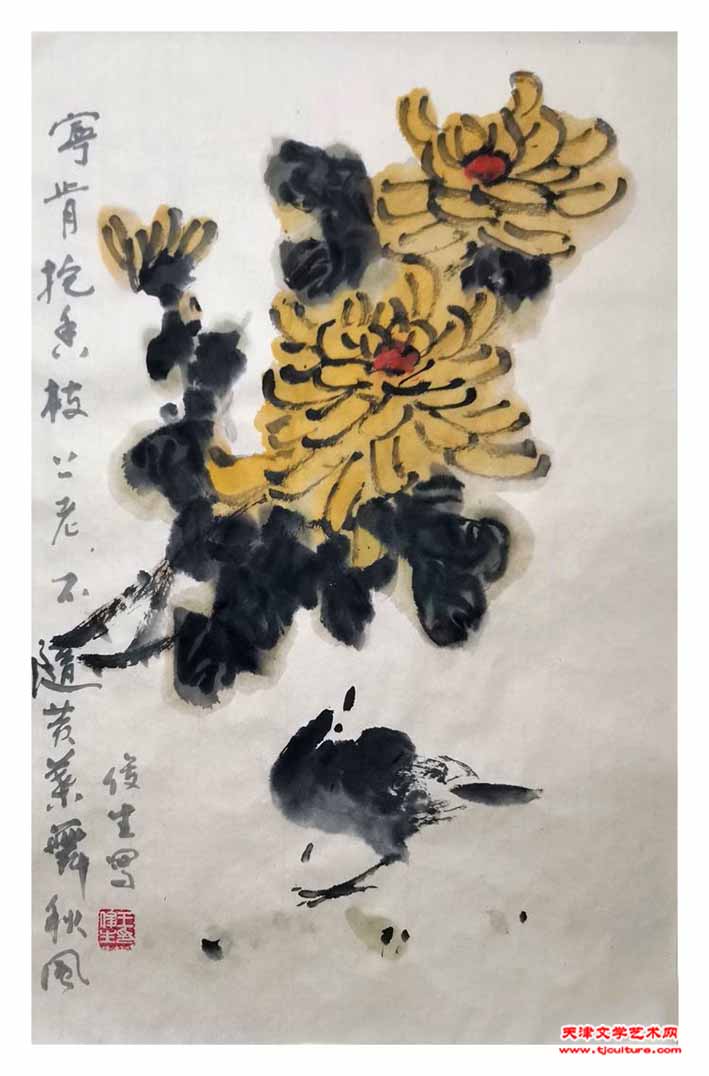 寧肯抱香枝上老不隨黄葉舞秋風
俊生寫
天津文学艺术网
www.tjculture.com